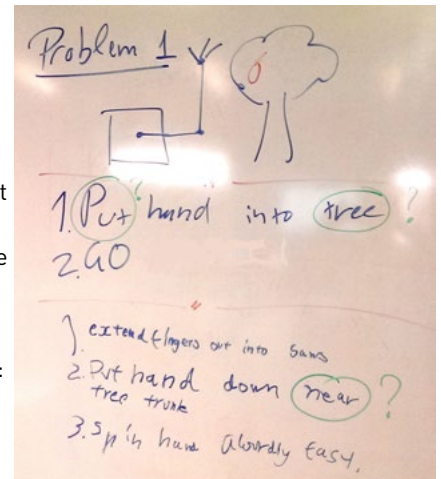 Problem 1
?
1. Put hand into tree ?
2. GO
1. extend fingers out into saws
2. Put hand down near ?
tree trunk
3. Spin hand absurdly easy.
t
e
: